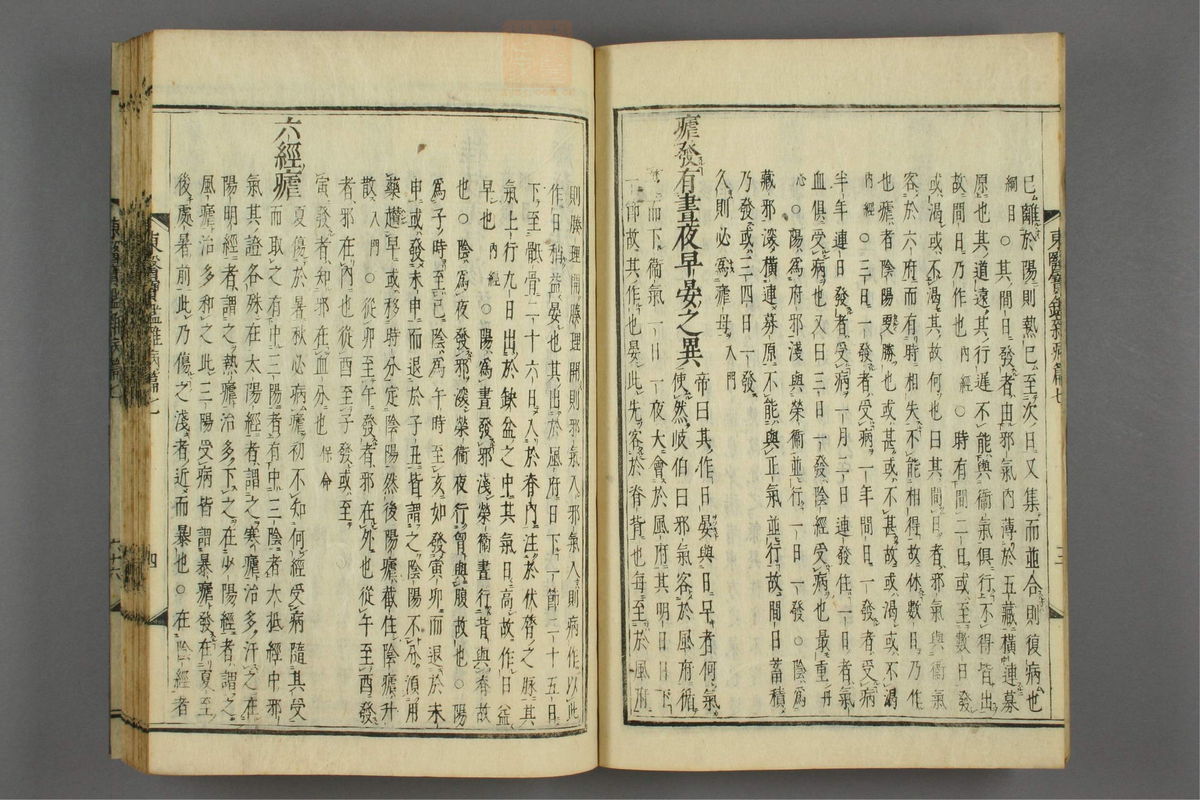 已離於陽則熱已至次日又集而並合則復病也
綱目○其間日發者由邪氣內薄於五藏橫連募
原也其道遠其行遲不能與衞氣俱行不得皆出
故間日乃作也內經○時有間二日或至數日發
或渴或不渴其故何也曰其間日者邪氣與衞氣
客於六府而有時相失不能相得故休數日乃作
也瘧者陰陽更勝也或甚或不甚故或渴或不渴
內經○三日一發者受病一年間日一發者受病
半年連日發者受病一月二日連發住一日者氣
血俱受病也又曰三日一發陰經受病也最重丹
心○陽爲府邪淺與榮衞並行一日一發○陰爲
藏邪深橫連募原不能與正氣並行故間日蓄積
乃發或三四日一發
久則必爲瘧母入門
瘧發有晝夜早晏之異 帝曰其作日晏與日早者何氣
使然歧伯曰邪氣客於風府循
而下衞氣一日一夜大會於風府其明日日下
一節故其作也晏此先客於脊背也每至於風府
則腠理開腠理開則邪氣入邪氣入則病作以此
作日稍益晏也其出於風府日下一節二十五日
下至骶骨二十六日入於脊內注於伏膂之脉其
氣上行九日出於缺盆之中其氣日高故作日益
早也內經○陽爲晝發邪淺榮衞晝行背與脊故
也○陰爲夜發邪深榮衞夜行胷與腹故也○陽
爲子時至巳陰爲午時至亥如發寅卯而退於未
申或發未申而退於子丑皆謂之陰陽不分須用
藥趲早或移時分定陰陽然後陽瘧截住陰瘧升
散入門○從卯至午發者邪在外也從午至酉發
者邪在內也從酉至子發或至
寅發者知邪在血分也保命
六經瘧 夏傷於暑秋必病瘧初不知何經受病隨其受
而取之有中三陽者有中三陰者大抵經中邪
氣其證各殊在太陽經者謂之寒瘧治多汗之在
陽明經者謂之熱瘧治多下之在少陽經者謂之
風瘧治多和之此三陽受病皆謂暴瘧發在夏至
後處暑前此乃傷之淺者近而暴也○在陰經者
東醫寶鑑雜病篇七
三
東醫寶鑑雜病篇七
四